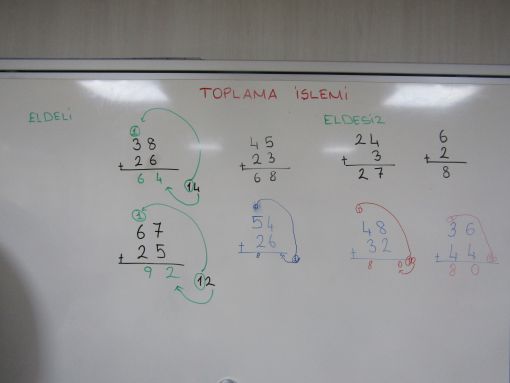 TOPLAMA İŞLEMİ
ELDELİ
ELDESİZ
1
38
+ 26
64
14
45
+ 23
68
24
+ 3
27
6
+ 2
8
1
67
+ 25
92
12
54
+ 26
8
48
+ 32
8 0
36
+ 44
80